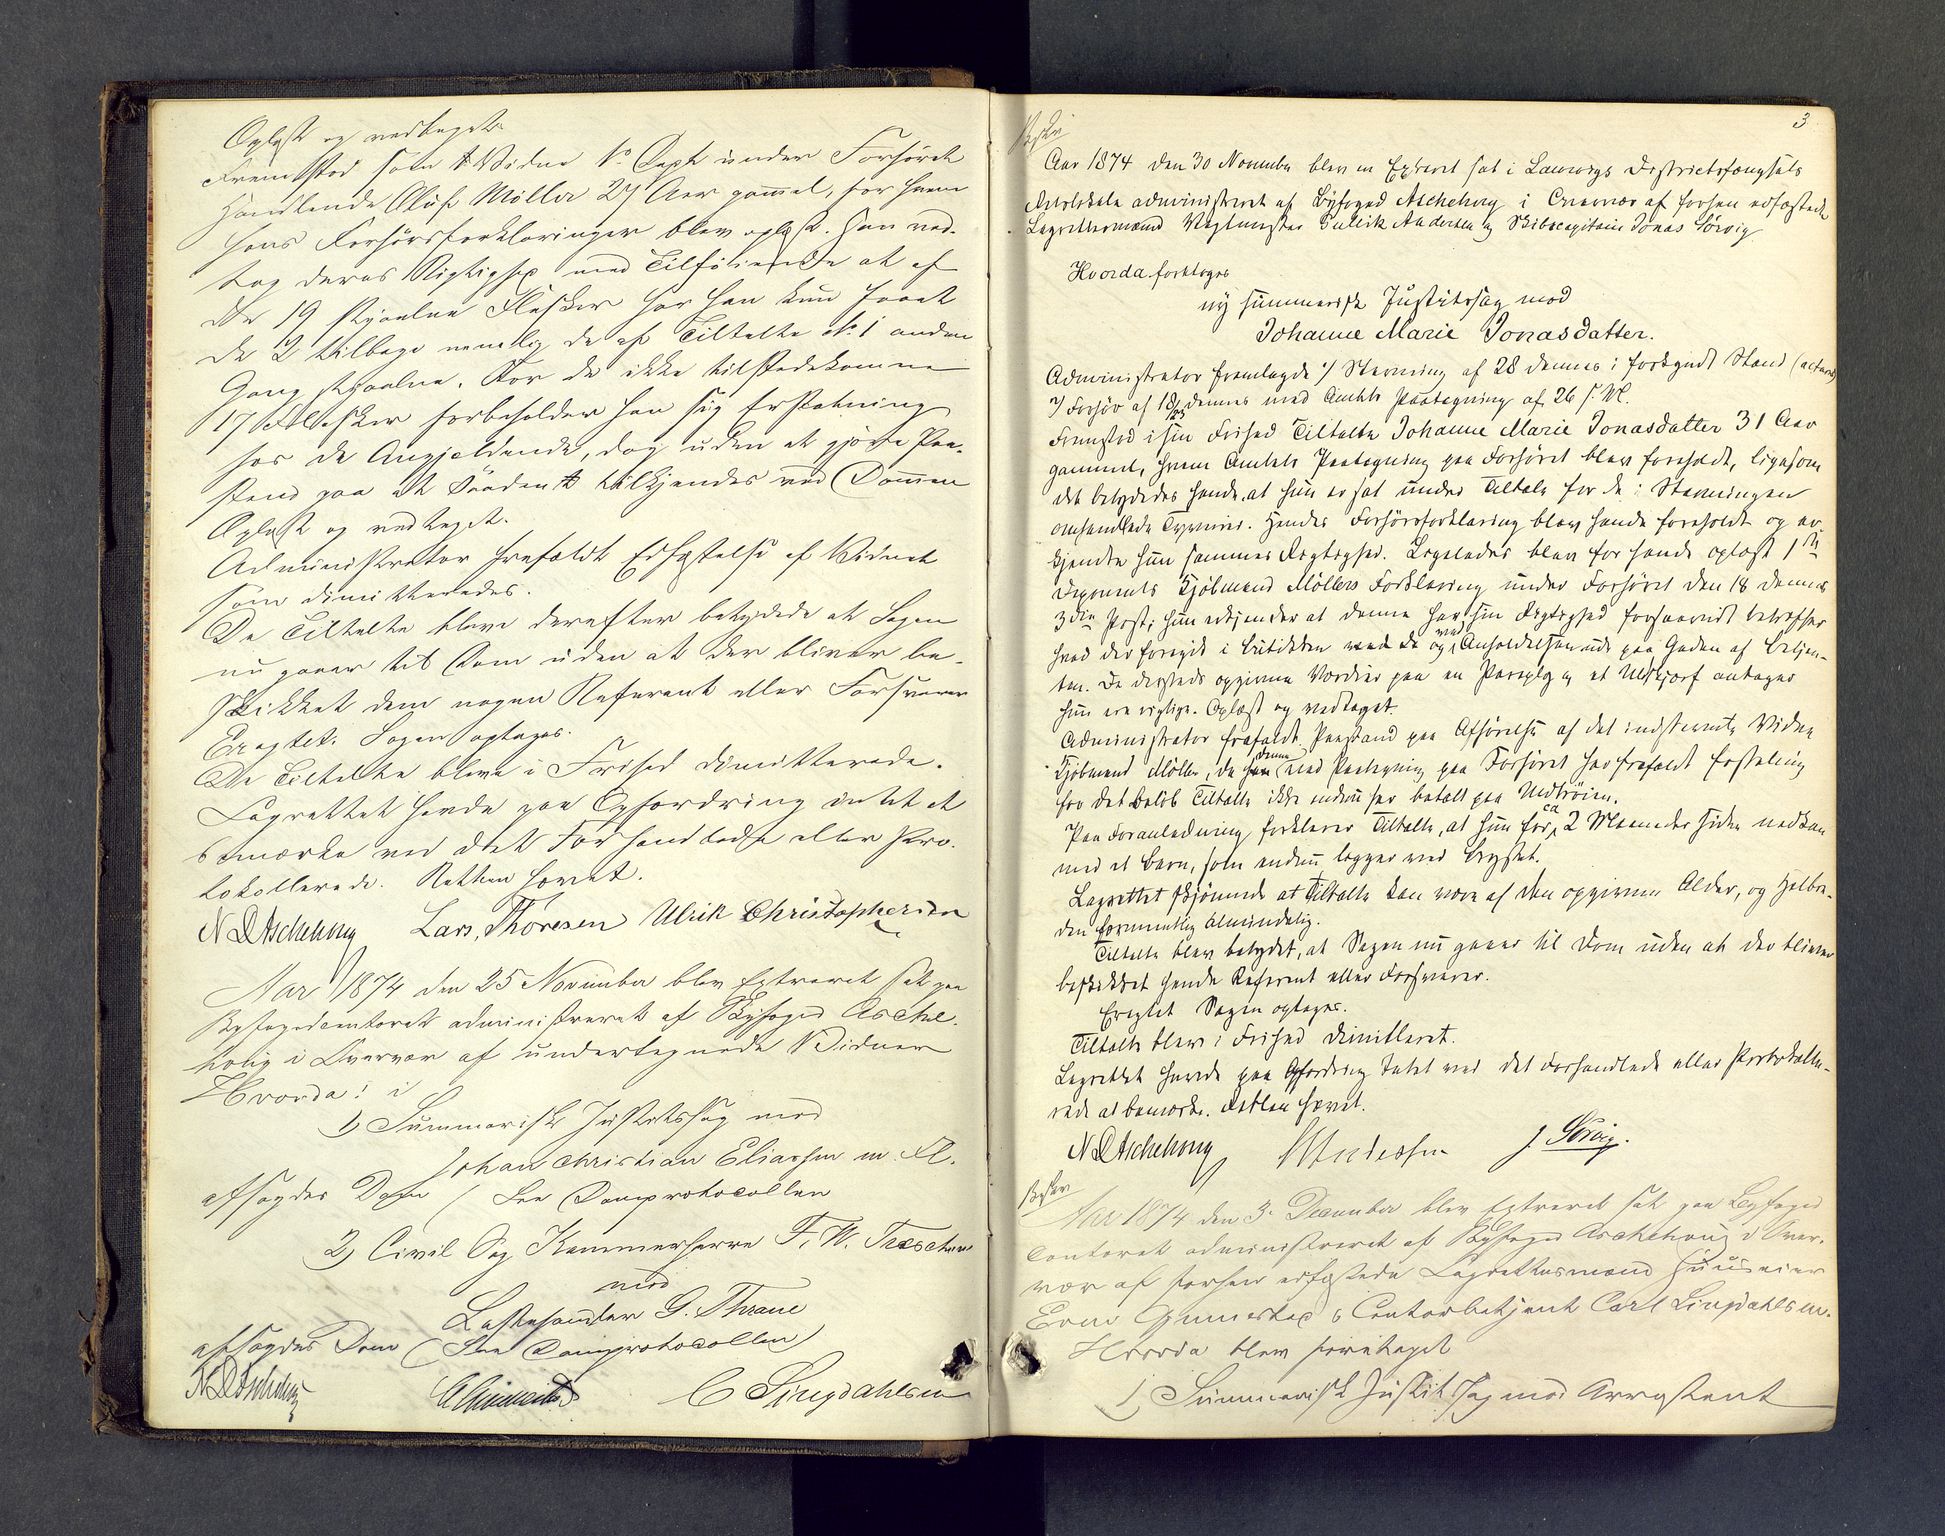 Oplæst og vedtaget.
Fremstod som Vidne No Sept under Forhøret
Handlende Oluf Möller 27 Aar gammel, for hvem
hans Forhørsforklaringer blev oplæst. Han ved-
tog deres Rigtighed med Tilføiende at af
de 19 stjaalne Flasker har han kun faaet
de 2 tilbage nemlig de af Tiltalte No 1 anden
Gang stjaalne. For de ikke tilstedekomne
17 Flasker forbeholder han sig Erstatning
hos de Angjældende, dog uden at gjøre Paa-
stand paa at Saadant tilkjendes ved Dommen
Oplæst og vedtaget.
Administrator frafaldt Edfæstelse af Vidnet
som dimitteredes.
De Tiltalte bleve derefter betydede at Sagen
nu gaaer til Dom uden at der bliver be-
skikket dem nogen Referent eller Forsvarer
Eragtet. Sagen optages.
De Tiltalte bleve i Frihed dimitterede.
Lagrettet havde paa Opfordring intet at
bemærke ved det Forhandlede eller Pro-
tokollerede. Retten hævet.
N D Aschehoug Lars Thoresen Ulrik Christophersen
Aar 1874 den 25 November blev Extraret sat paa
Byfogedcontoret administreret af Byfoged Asche-
houg i Overvær af undertegnede Vidner
Hvorda: i
1) Summarisk Justitssag mod
Johan Christian Eliassen m. Fl.
afsagdes Dom (See Domprotocollen
2) Civil Sag Kammerherre F. W. Treschow
mod
Lastehandler G. Thrane
afsagdes Dom (See Domprotocollen)
N D Aschehoug C Lingdahlsen
3
Aar 1874 den 30 November blev en Extraret sat i Laurvigs Districtsfængsels
Retslokale administreret af Byfoged Aschehoug i Overvær af forhen edfæstede
Lagrettesmænd Vægtmester Gullik Andersen og Skibscapitain Jonas Sörvig
Hvorda foretoges
ny summarisk Justitssag mod
Johanne Marie Jonasdatter.
Administrator fremlagde 1) Stevning af 28 dennes i forkyndt Stand (acteres)
2) Forhør af 18/23 dennes med Amtets Paategning af 26 s. M.
Fremstod i sin Frihed Tiltalte Johanne Marie Jonasdatter 31 Aar
gammel, hvem Amtets Paategning paa Forhøret blev foreholdt, ligesom
det betydedes hende, at hun er sat under Tiltale for de i Stevningen
omhandlede Tyverier. Hendes Forhørsforklaring blev hende foreholdt og er-
kjendte hun sammes Rigtighed. Ligeledes blev for hende oplæst 1ste
Deponents Kjøbmand Möllers Forklaring under Forhøret den 18 dennes
3die Post; hun erkjender at denne har sin Rigtighed forsaavidt betræffer
hvad der foregik i Butikken med de og ved Anholdelsen ude paa Gaden af Betjen-
ten. De dersteds opgivne Værdier paa en Paraply og et Uldskjerf antager
hun ere rigtige. Oplæst og vedtaget
Administrator frafaldt Paastand paa Afhørelse af det indstevnte Vidne
Kjøbmand Möller, da denne ved Paategning paa Forhøret har frafaldt Erstatning
for det Beløb Tiltalte ikke endnu har betalt paa Uldtrøien.
Paa Foranledning forklarer Tiltalte, at hun for ca 2 Maaneder siden nedkom
med et Barn, som endnu ligger ved Brystet.
Lagrettet skjønnede at Tiltalte kan være af den opgivne Alder, og Helbre-
den formentlig almindelig.
Tiltalte blev betydet, at Sagen nu gaaer til Dom uden at der bliver
beskikket hende Referent eller Forsvarer.
Eragtet Sagen optages.
Tiltalte blev i Frihed dimitteret.
Lagrettet havde paa Opfordring Intet ved det Forhandlede eller Protokolle-
rede at bemærke. Retten hævet.
N D Aschehoug Andersen J Sörvig.
Aar 1874 den 3. December blev Extraret sat paa Byfoged
Contoret administreret af Byfoged Aschehoug i Over-
vær af forhen edfæstede Lagrettesmænd Huuseier
Even Gunnestad & Contorbetjent Carl Lingdahlsen.
Hvorda blev foretaget
1) Summarisk Justitssag mod Arrestant